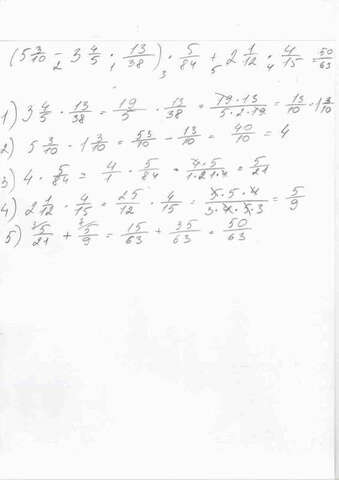 (5 3/10 − 3 4/5 · 13/38) · 5/84 + 2 1/12 · 4/15 = 50/63
1) 3 4/5 · 13/38 = 19/5 · 13/38 = 19·13/5·2·19 = 13/10 = 1 3/10
2) 5 3/10 - 1 3/10 = 53/10 − 13/10 = 40/10 = 4
3) 4 · 5/84 = 4/1 · 5/84 = 4·5/1·21·4 = 5/21
4) 2 1/12 · 4/15 = 25/12 · 4/15 = 5·5·4/3·4·5·3 = 5/9
5) 5/21 + 5/9 = 15/63 + 35/63 = 50/63